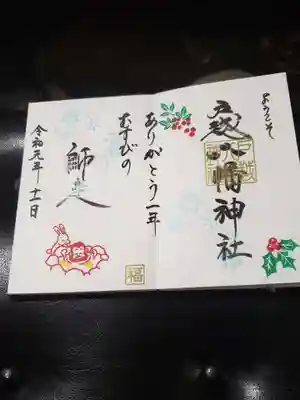 ようこそ
戸越八幡神社
ありがとう一年
むすびの
師走
令和元年 十二月 一日
福